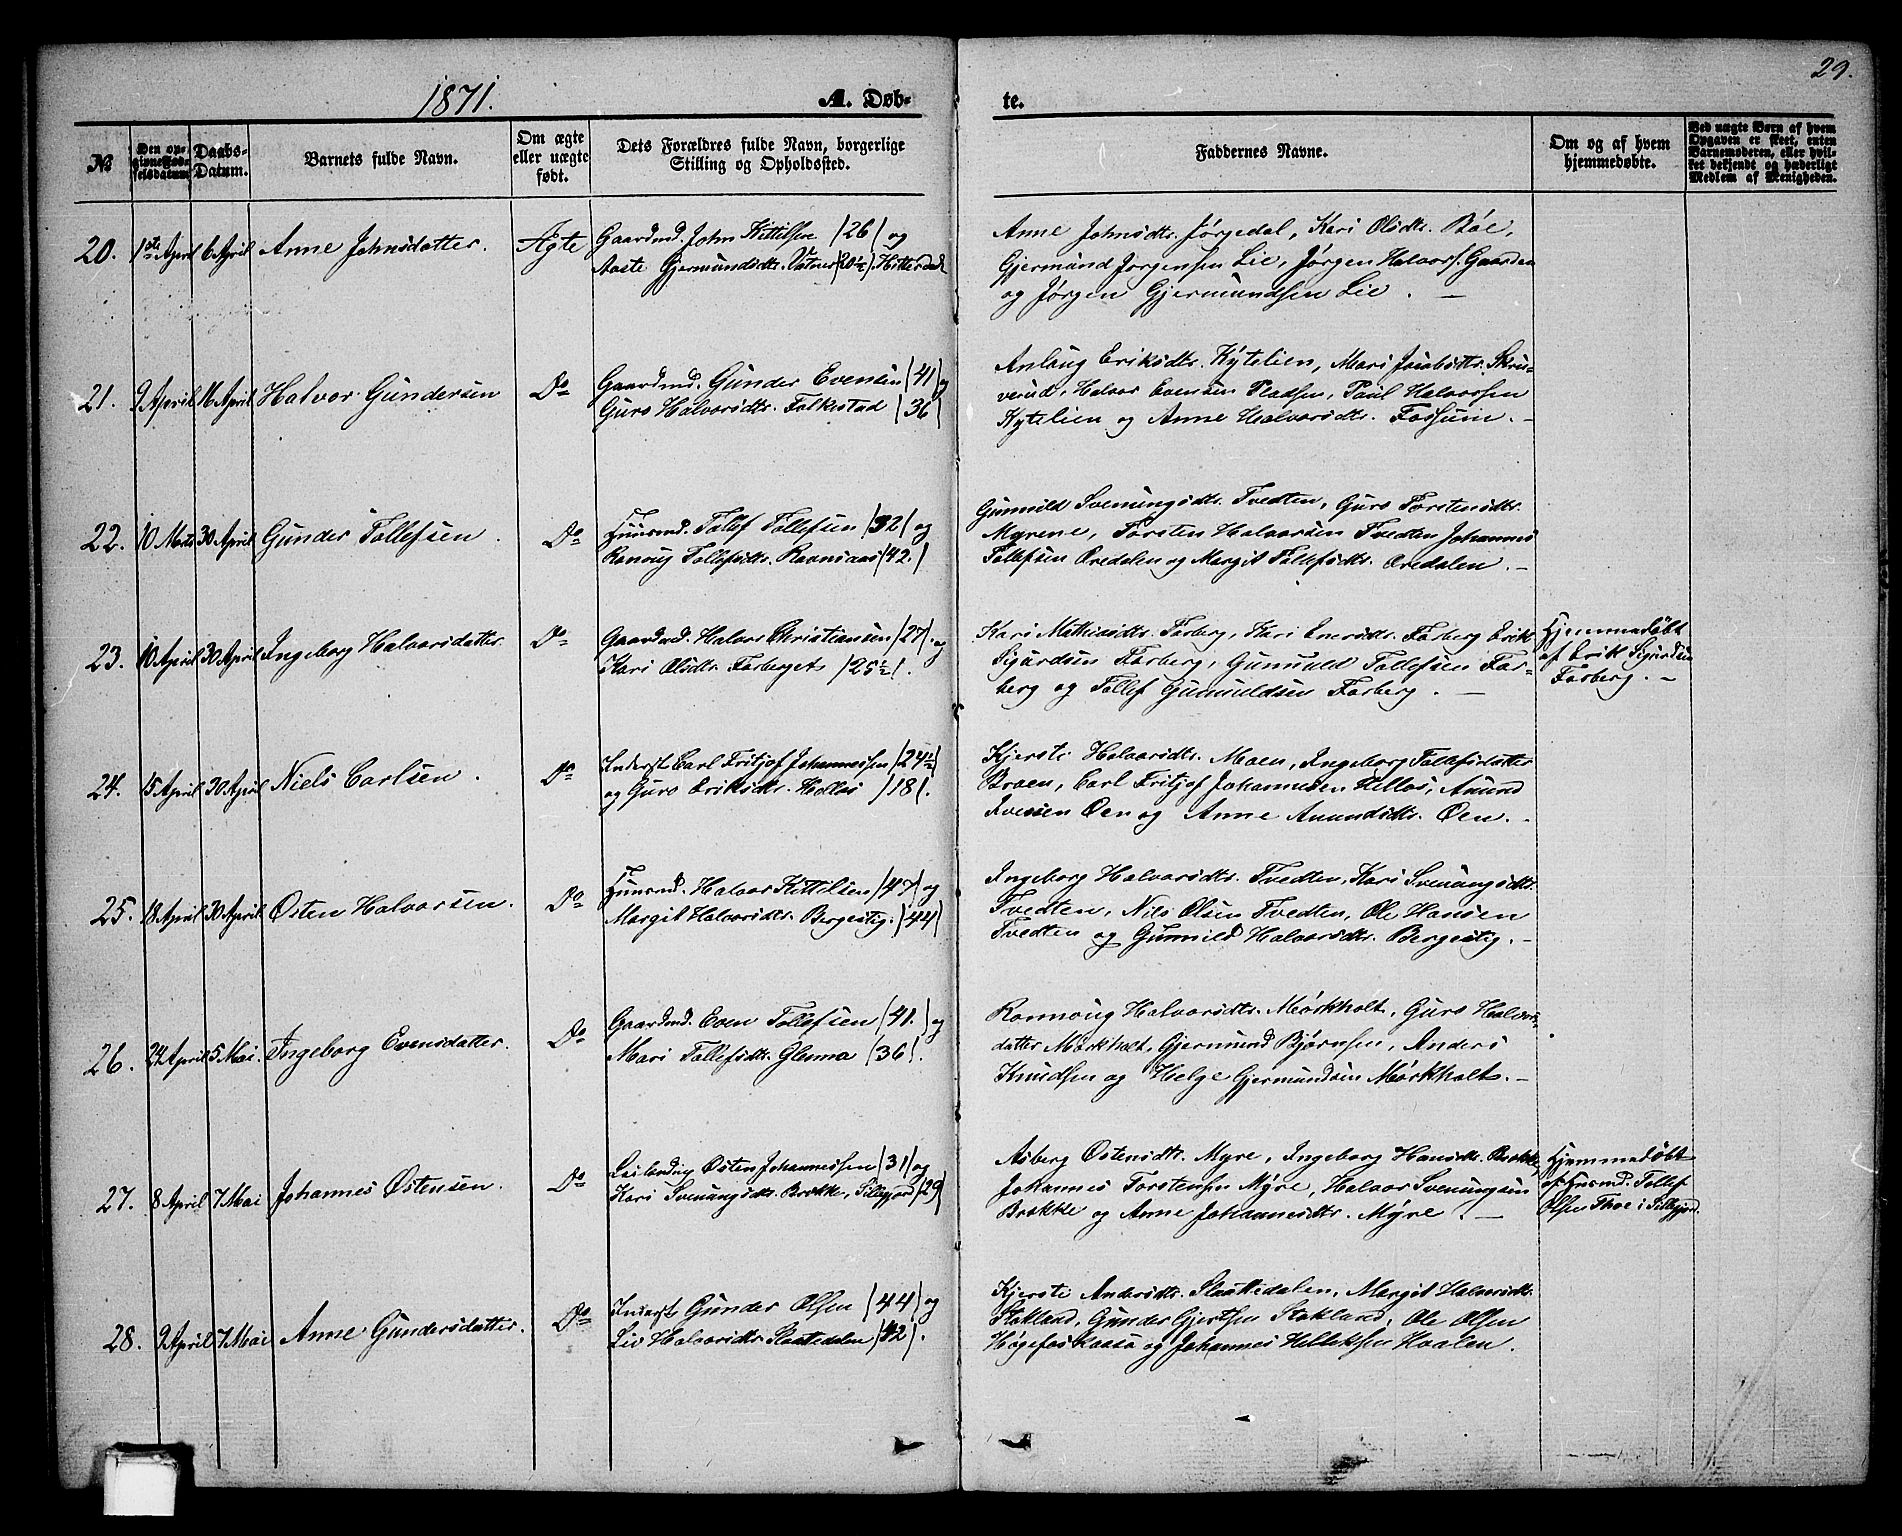 29.
1871.
A. Døb-
te.
№
Den opgivne Fødselsdatum
Daabs-Datum.
Barnets fulde Navn.
Om ægte eller uægte født.
Dets Forældres fulde Navn, borgerlige Stilling og Opholdssted.
Faddernes Navne.
Om og af hvem hjemmedøbte.
Ved uægte Børn af hvem Opgaven er skeet, enten Barnemoderen, eller hvilket bekjendt og hæderligt Medlem af Menigheden.
20. 1ste April 6 April Anne Johnsdatter. Ægte
Gaardmd. John Kittilsen /26/ og
Aaste Gjermundsdtr. /20½/ Hitterdal
Anne Johnsdtr. Jørgedal, Kari Olsdtr. Bøe,
Gjermund Jørgensen Lie, Jørgen Halvors. Gaarden
og Jørgen Gjermundsen Lie. —
21. 9 April 16 April Halvor Gundersen Do
Gaardmd. Gunder Evensen /41/ og
Guro Halvorsdtr. Falkestad /36/
Anlaug Eriksdtr. Kytelien, Mari Jacobsdtr. Skru-
verud, Halvor Evensen Pladsen, Paul Halvorsen
Kytelien og Anne Halvorsdtr. Fossum. —
22. 10 Marts 30 April Gunder Tollefsen. Do
Huusmd. Tollef Tollefsen /32/ og
Ranoug Tollefsdtr. Ravnsaas /42./
Gunnild Svenungsdtr. Tvedten, Guro Torstensdtr.
Myrene, Torsten Halvorsen Tvedten, Johannes
Tollefsen Øredalen og Margit Tollefsdtr. Øredalen. —
23. 10 April 30 April Ingeborg Halvorsdatter. Do
Gaardmd. Halvor Christiansen /27/. og
Kari Olsdtr. Farberget /25½/.
Kari Mathiasdtr. Farberg, Kari Enersdtr. Farberg Erik
Sigurdsen Farberg, Gunnuld Tollefsen Far-
berg og Tollef Gunnuldsen Farberg. —
Hjemmedøbt
af Erik Sigurdsen
Farberg. —
24. 15 April 30 April Niels Carlsen. Do
Inderst Carl Fritjof Johannessen /24½/
og Guro Eriksdtr. /18/.
Kjersti Halvorsdtr. Moen, Ingeborg Tollefsdatter
Braen, Carl Fritjof Johannesen Hellos, Amund
Iversen Øen og Anne Amundsdtr. Øen. —
25. 18 April 30 April Østen Halvorsen. Do
Huusmd. Halvor Kittilsen /47/ og
Margit Halvorsdtr. Bergestig. /44/
Ingeborg Halvorsdtr. Tvedten, Kari Svenungsdtr.
Tvedten, Nils Olsen Tvedten, Ole Hansen
Tvedten og Gunnild Halvorsdtr. Bergestig. —
26. 24 April 5 Mai. Ingeborg Evensdatter. Do
Gaardmd. Even Tollefsen /41./ og
Mari Tollefsdtr. Glenna /36/.
Ronnoug Halvorsdtr. Mørkholt, Guro Halvors-
datter Mørkholt, Gjermund Bjørnsen, Anders
Knudsen og Helge Gjermundsen Mørkholt. —
27. 8 April 7 Mai Johannes Østensen. Do
Leilending Østen Johannessen /31/ og
Kari Svenungsdtr. Brokke, Silligjord /29/
Asberg Østensdtr. Myre, Ingeborg Hansdtr. Brokke
Johannes Torstensen Myre, Halvor Svenungsen
Brokke og Anne Johannesdtr. Myre. —
Hjemmedøbt
af Husmd. Tollef
Olsen Thoe i Silligjord.
28. 9 April 7 Mai Anne Gundersdatter. Do
Inderst Gunder Olsen /44/ og
Liv Halvorsdtr. Slaattedalen /42/.
Kjersti Andersdtr. Slaattedalen, Margit Halvorsdtr.
Stokland, Gunder Gjertsen Stokland, Ole Olsen
Høgefos Kaasa og Johannes Helleksen Hvalen.